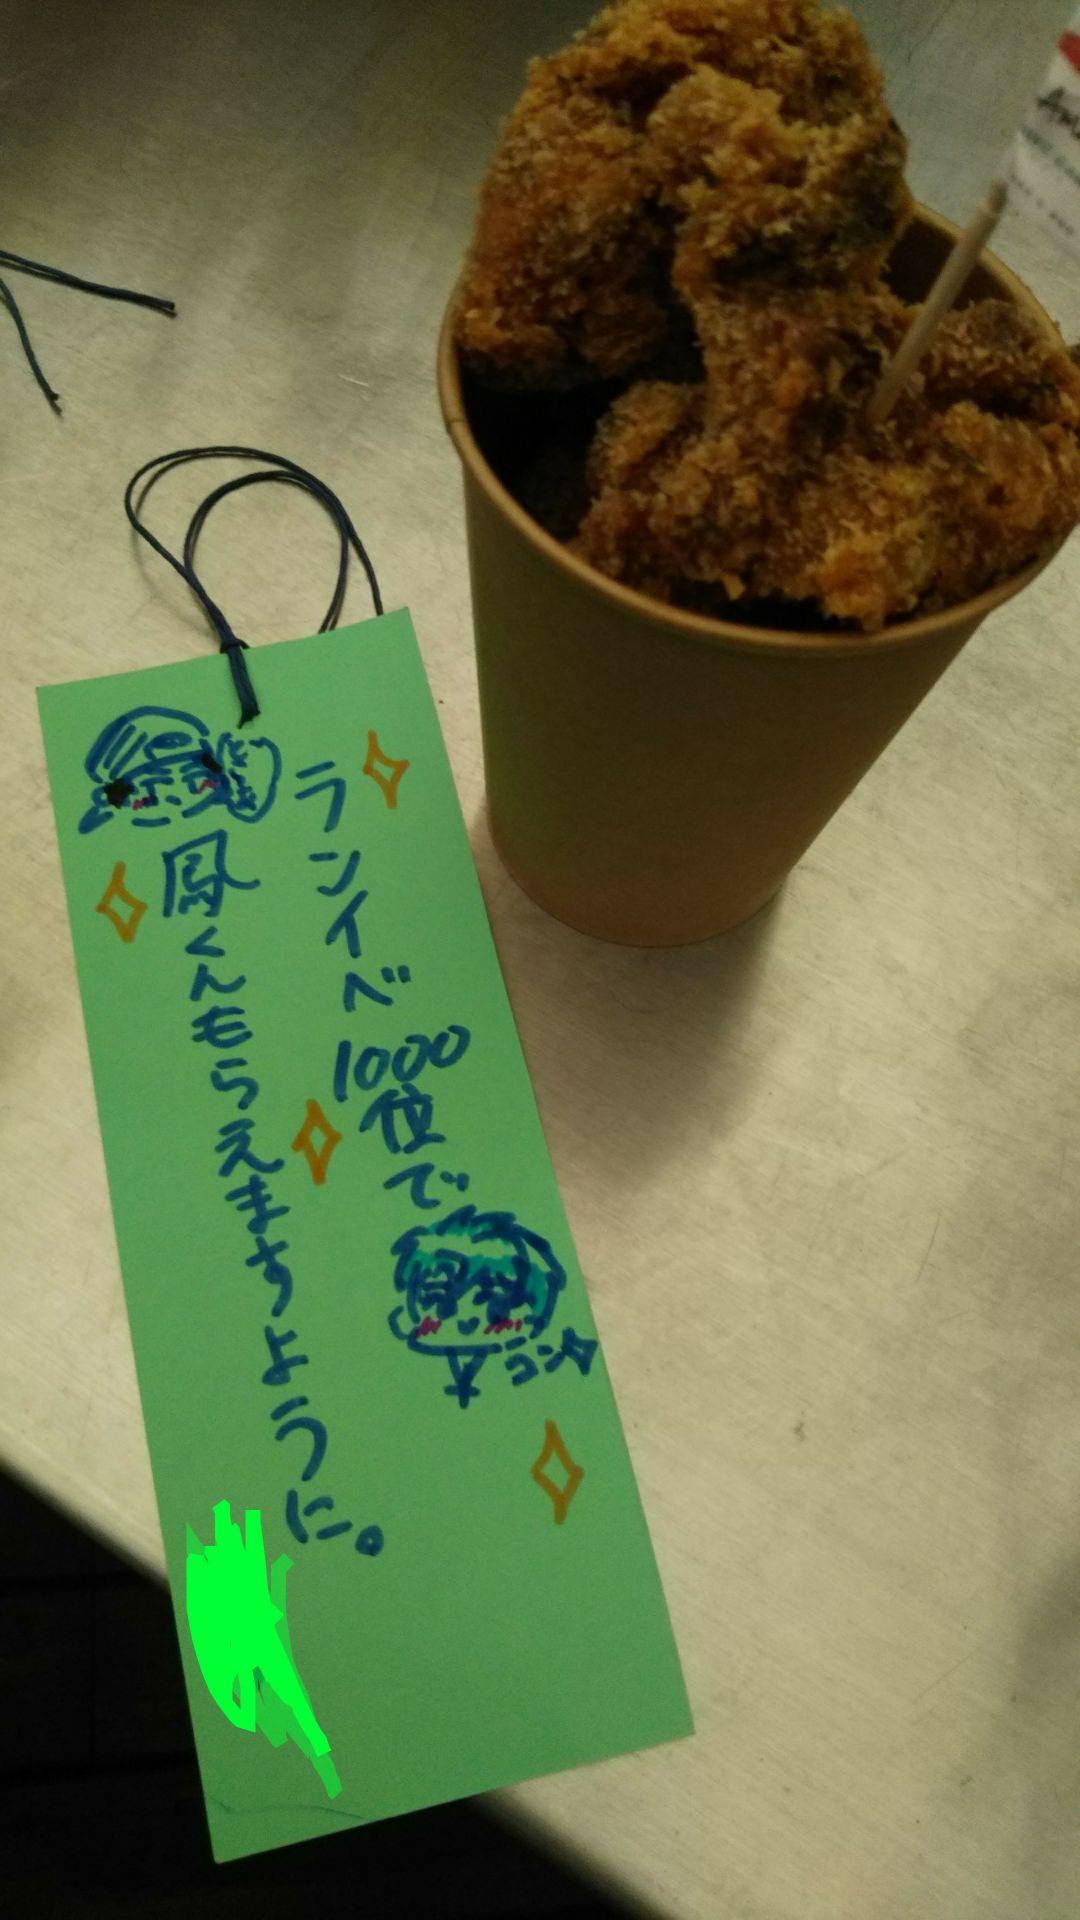 ランイベ1000位で
鳳くんもらえますように。
コン